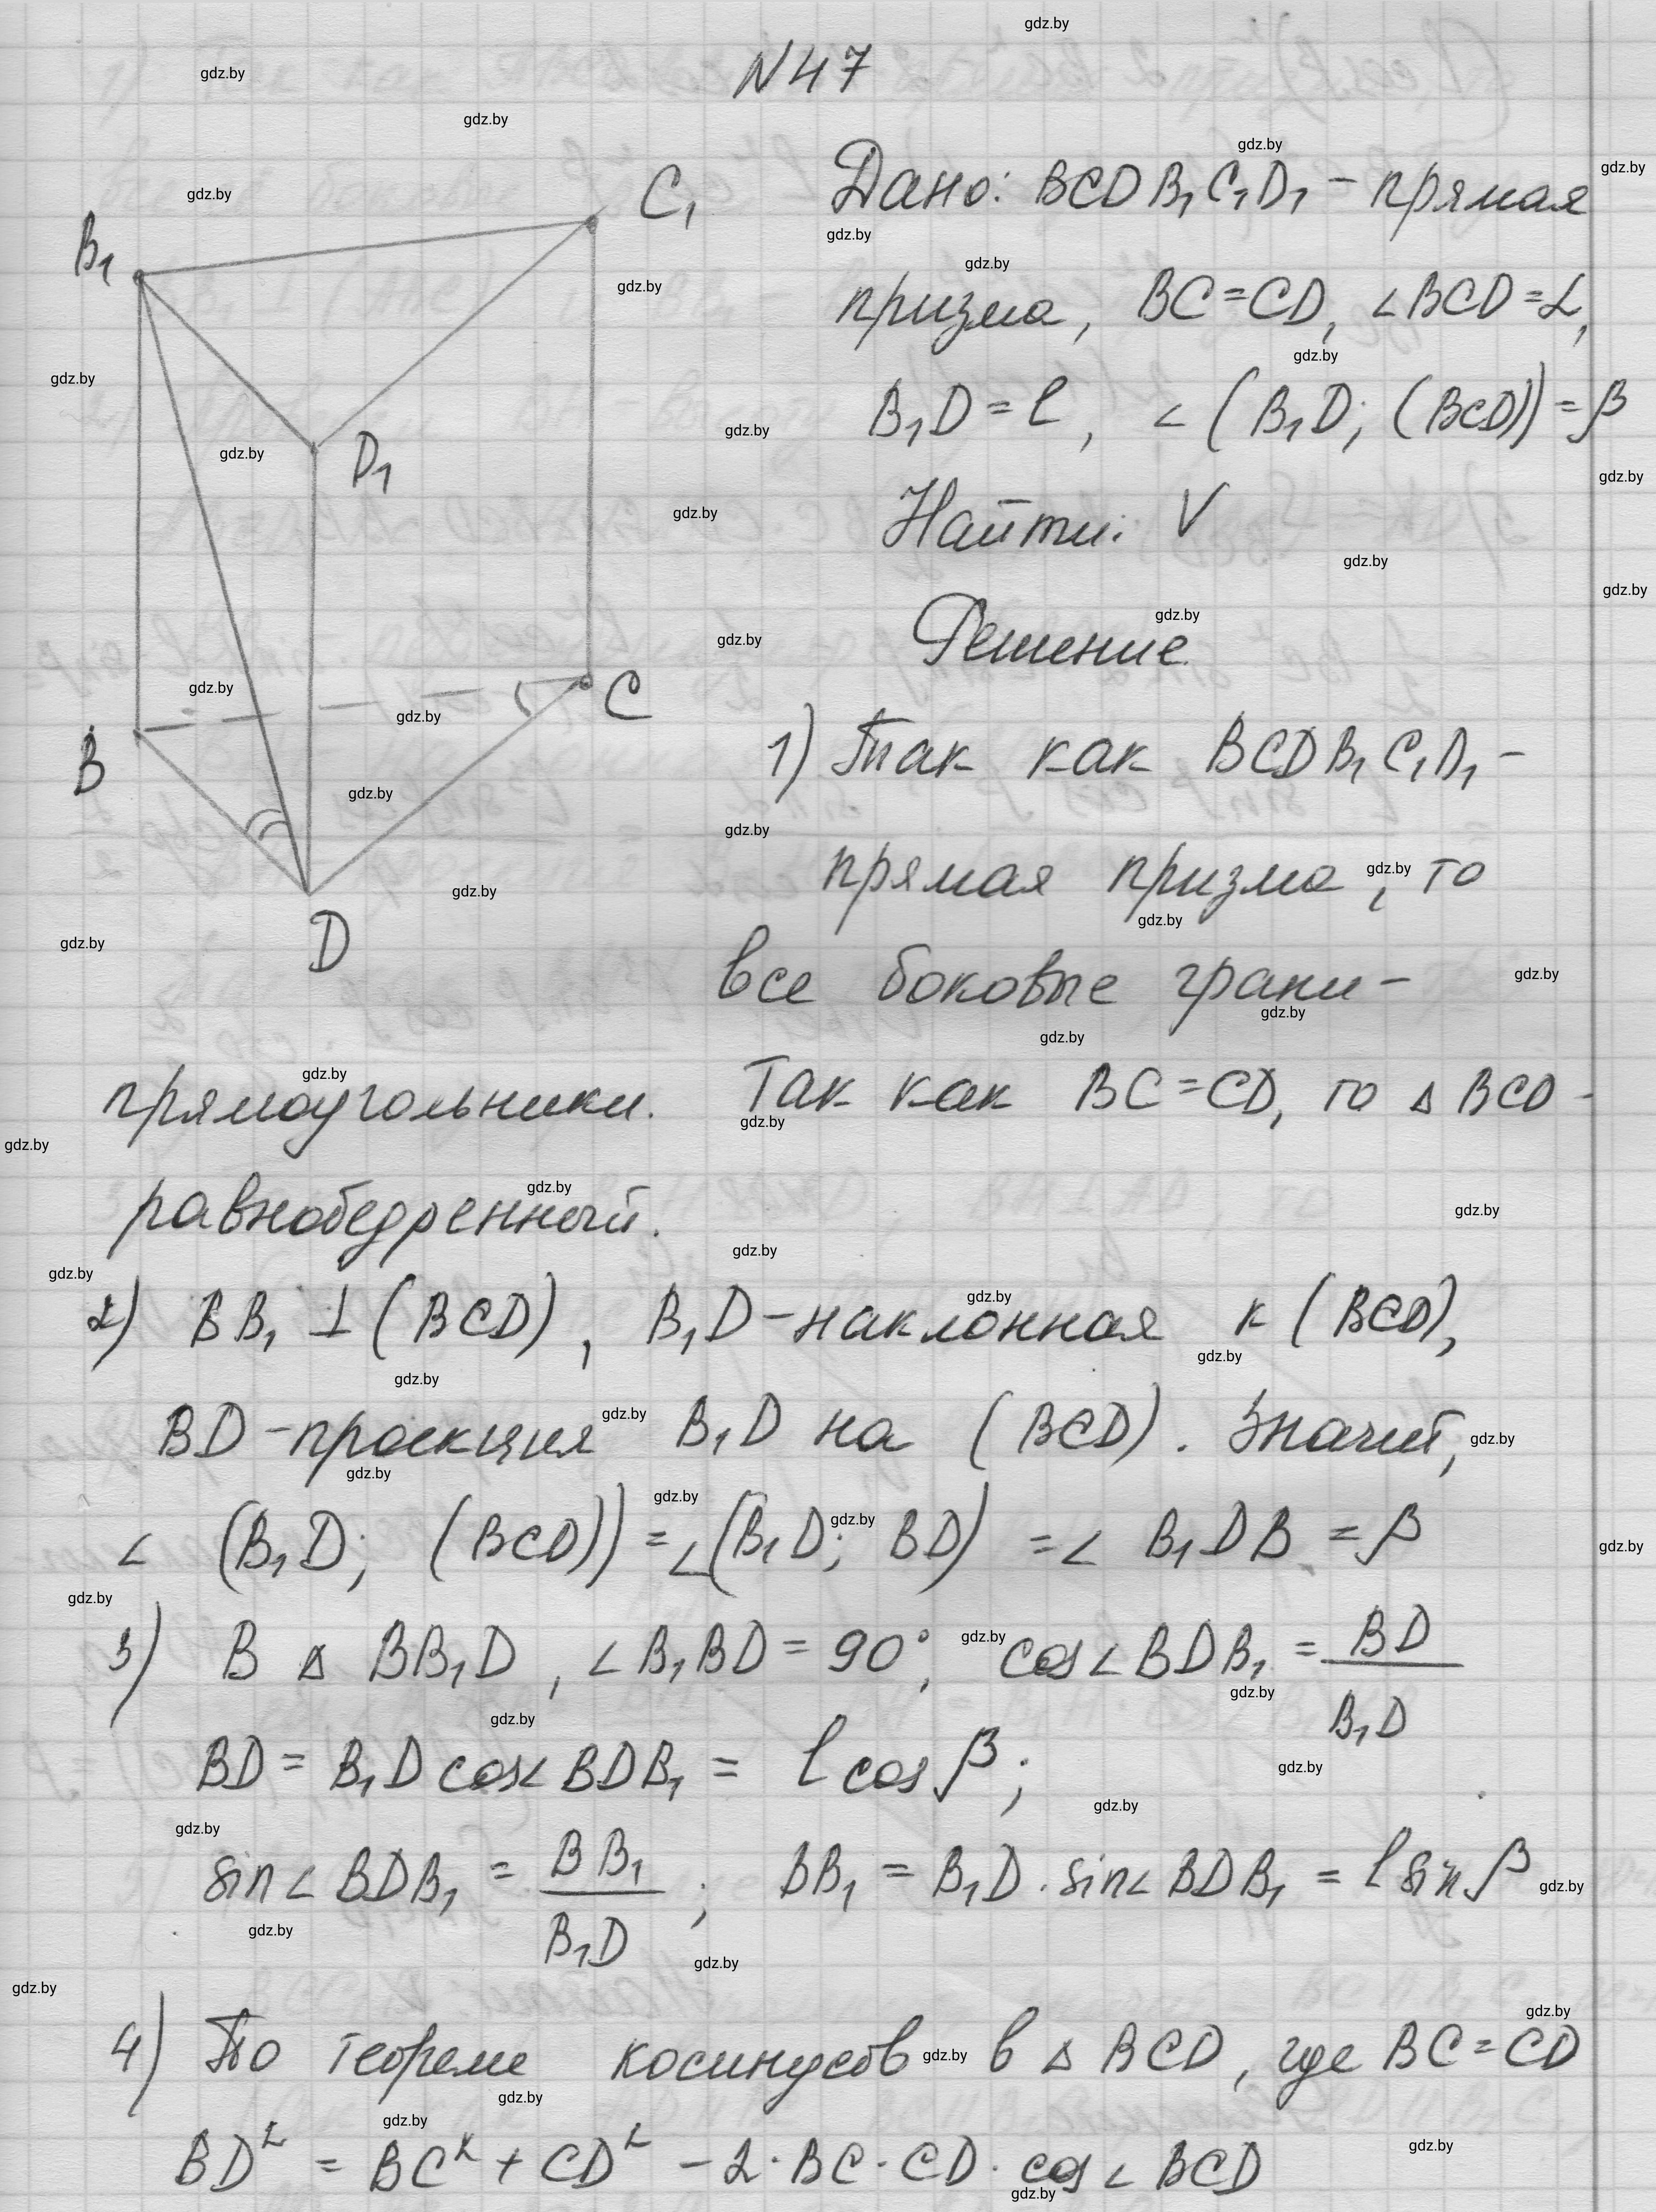 N47
Дано: BCDB₁C₁D₁ - прямая
призма, BC=CD, ∠BCD=α,
B₁D=l, ∠(B₁D; (BCD))=β
Найти: V
Решение
B₁
C₁
D₁
B
C
D
1) Так как BCDB₁C₁D₁ -
прямая призма, то
все боковые грани -
прямоугольники. Так как BC=CD, то △BCD -
равнобедренный.
2) BB₁ ⊥ (BCD), B₁D - наклонная к (BCD),
BD - проекция B₁D на (BCD). Значит,
∠(B₁D; (BCD)) = ∠(B₁D; BD) = ∠B₁DB = β
3) В △ BB₁D, ∠B₁BD = 90°, cos∠BDB₁ = BD/B₁D
BD = B₁D cos∠BDB₁ = l cos β;
sin∠BDB₁ = BB₁/B₁D; BB₁ = B₁D · sin∠BDB₁ = l sin β
4) По теореме косинусов в △ BCD, где BC=CD
BD² = BC² + CD² - 2·BC·CD·cos∠BCD
gdz.by